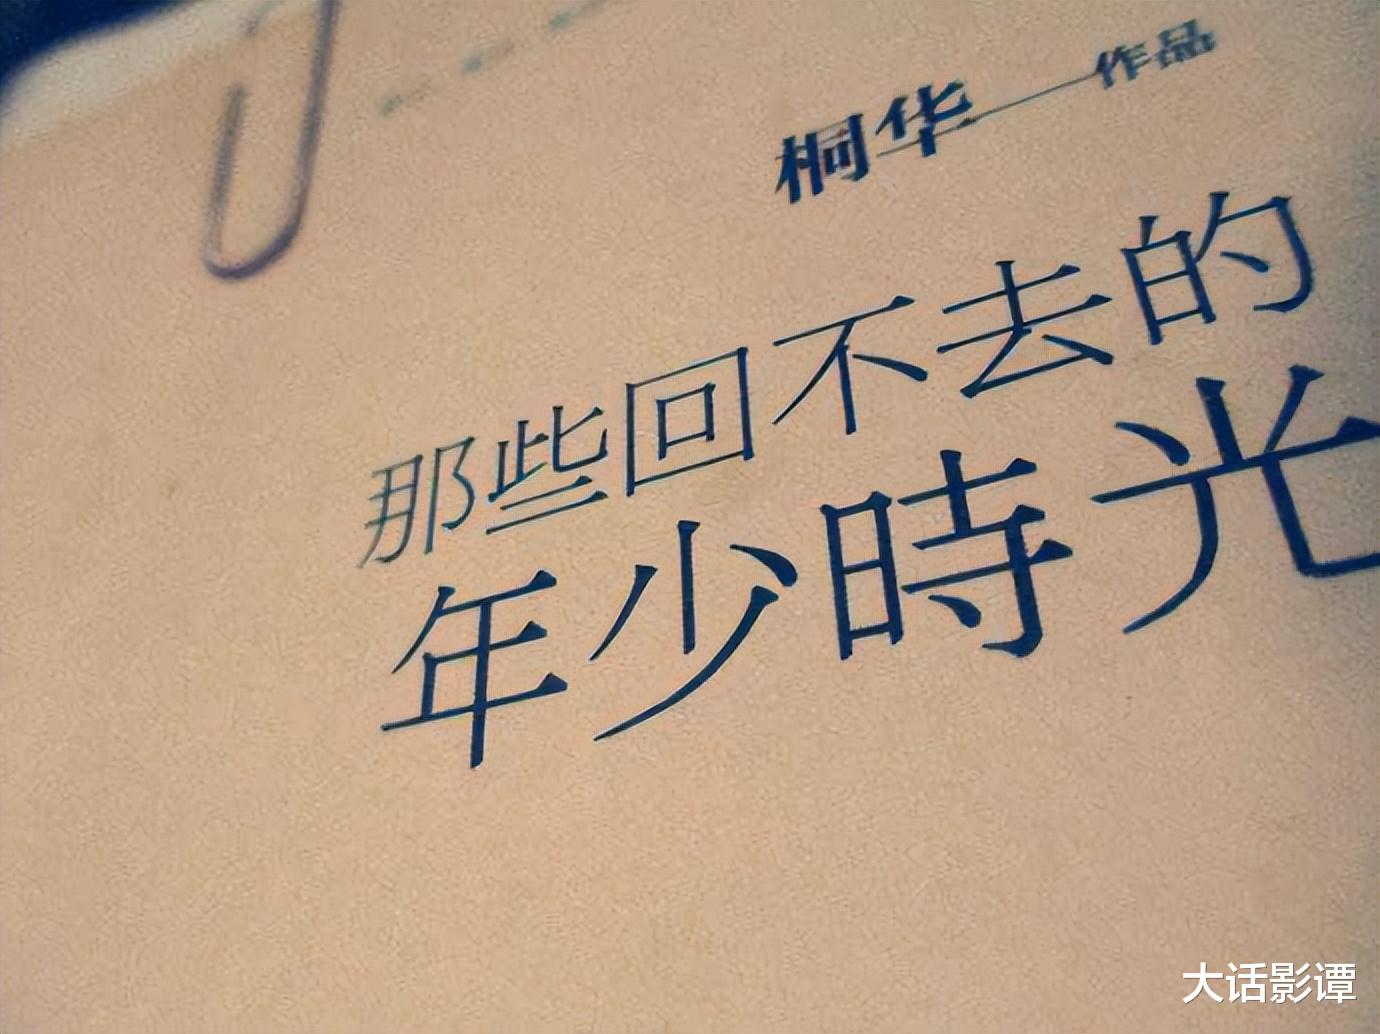 桐华——作品
那些回不去的
年少時光
大话影谭